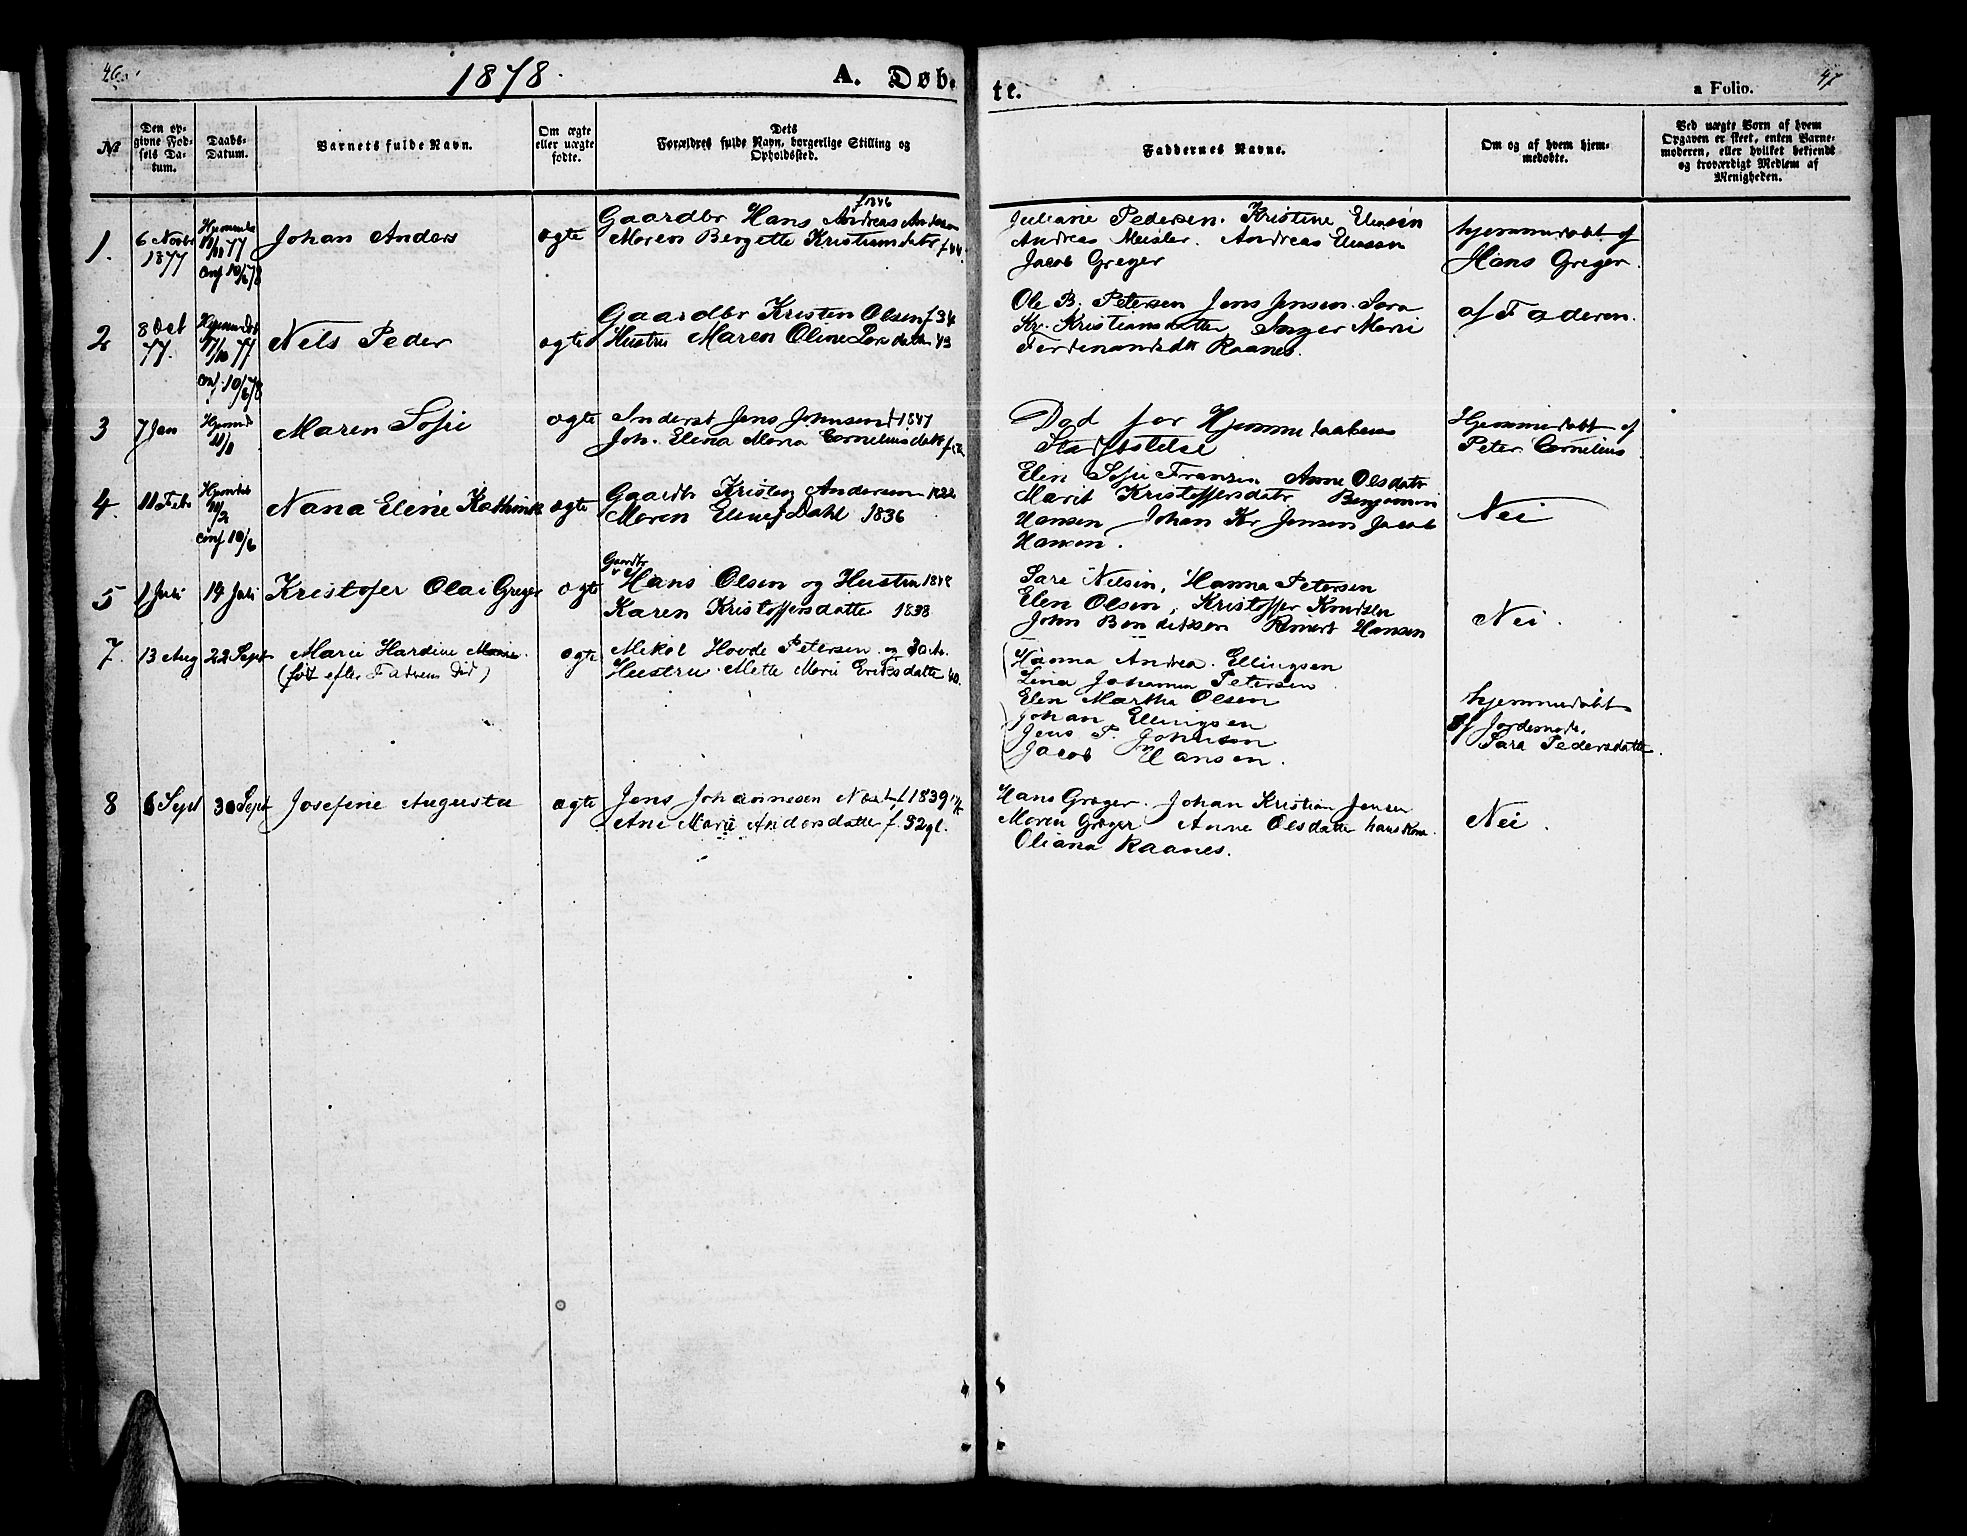 46
1878.
A. Døb-
te.
a Folio.
47
№
Den op-
givne Fød-
sels Da-
tum.
Daabs-
Datum.
Barnets fulde Navn.
Om ægte
eller uægte
fødte.
Dets
Forældres fulde Navn, borgerlige Stilling og
Opholdssted.
Faddernes Navne.
Om og af hvem hjem-
medøbte.
Ved uægte Børn af hvem
Opgaven er skeet, enten Barne-
moderen, eller hvilket bekjendt
og troværdigt Medlem af
Menigheden.
1.
6 Novbr
1877
77
conf 10/6 78
Johan Anders
ægte
f 1846
Gaardbr Hans Andreas Andersen
Maren Bergette Kristiansdatr f 44.
Juliane Pedersen. Kristine Eliassen
Andreas Meisler. Andreas Eliassen
Jacob Greger
hjemmedøbt af
Hans Greger.
2
8 Oct
77.
Hjemmdøbt
17/10 77
conf. 10/6 78
Nels Peder
ægte
Gaardbr Kristen Olsen f 34
Hustru Maren Oline datter 43
Ole B. Petersen Jens Jensen. Sara
Kr. Kristiansdatter, Inger Marie
Ferdinandsdtr Raanes.
af Faderen.
3
7 Jan
Hjemmd
Maren Sofie
ægte
Inderst Jens Johnsen f 1847
Joh. Elena Maria Cornelius datt
Død før Hjemmedaabens
Stadfæstelse
Hjemmedøbt af
Peter Cornelius
4.
11 Feb
conf 10/6
Nana Eline Kathinka
ægte
Gaardbr Kristen Andersen 1822
Maren Eline Dahl 1836
Elen Sofie Fransen Anne Olsdatr
Marit Kristoffersdatr Benjamin
Hansen Johan Kr Jensen Jacob
Hansen.
Nei
5
1 Juli
14 Juli
Kristofer Olai Greger
ægte
Gaardbr
Hans Olsen og Hustru
Karen Kristoffersdatte 1838
Sara Nilsen, Hanna Petersen
Elen Olsen, Kristoffer Knudsen
John Bendiksen Reinert Hansen
Nei.
7.
13 Aug
22 Sept
Marie Hardine
(født efter Faderens Død)
ægte
Mikal Hovde Petersen og
Hustru Mette Marie Eriksdatte 40.
Hanna Andrea. Ellingsen
Lina Johanna Petersen
Elen Martha Olsen
Johan Ellingsen
Jens P. Johnsen
Jacob Hansen.
hjemmedøbt
af Jordemoder
Sara Pedersdatte.
8
6 Sept
30 Sept
Josefine Augusta
ægte
Jens Johannesen f 1839
Ane Marie Andersdatte f. 32 gl.
Hans Greger. Johan Kristian Jensen
Maren Greger Anne Olsdatte hans Kone.
Oliana Raanes.
Nei.